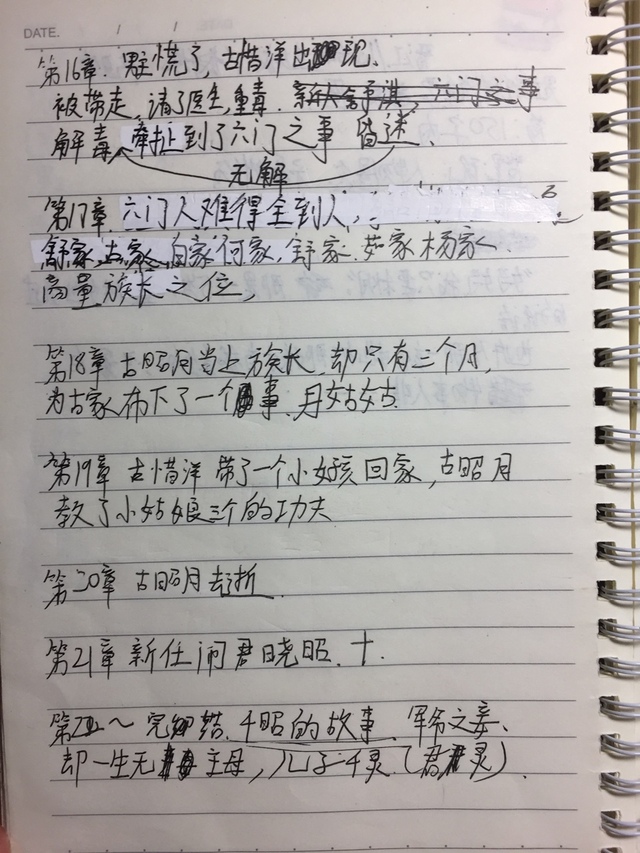 DATE.
第16章. 慌了,古惜洋出现.
被带走,请了医生,重毒. 六门之事
解毒 牵扯到了六门之事 昏迷.
无解
第17章 六门人难得全到人,
舒家,古家,白家何家,舒家.茹家杨家
商量族长之位,
第18章 古昭月当上族长,却只有三个月,
为古家布下了一个事.月姑姑.
第19章 古惜洋 带了一个小女孩回家,古昭月
教了小姑娘三个的功夫
第20章 古昭月去折.
第21章 新任阁君晓昭.十.
第22~完结.千昭的故事.军爷之妾、
却一生无主母,儿子千灵.(君灵).